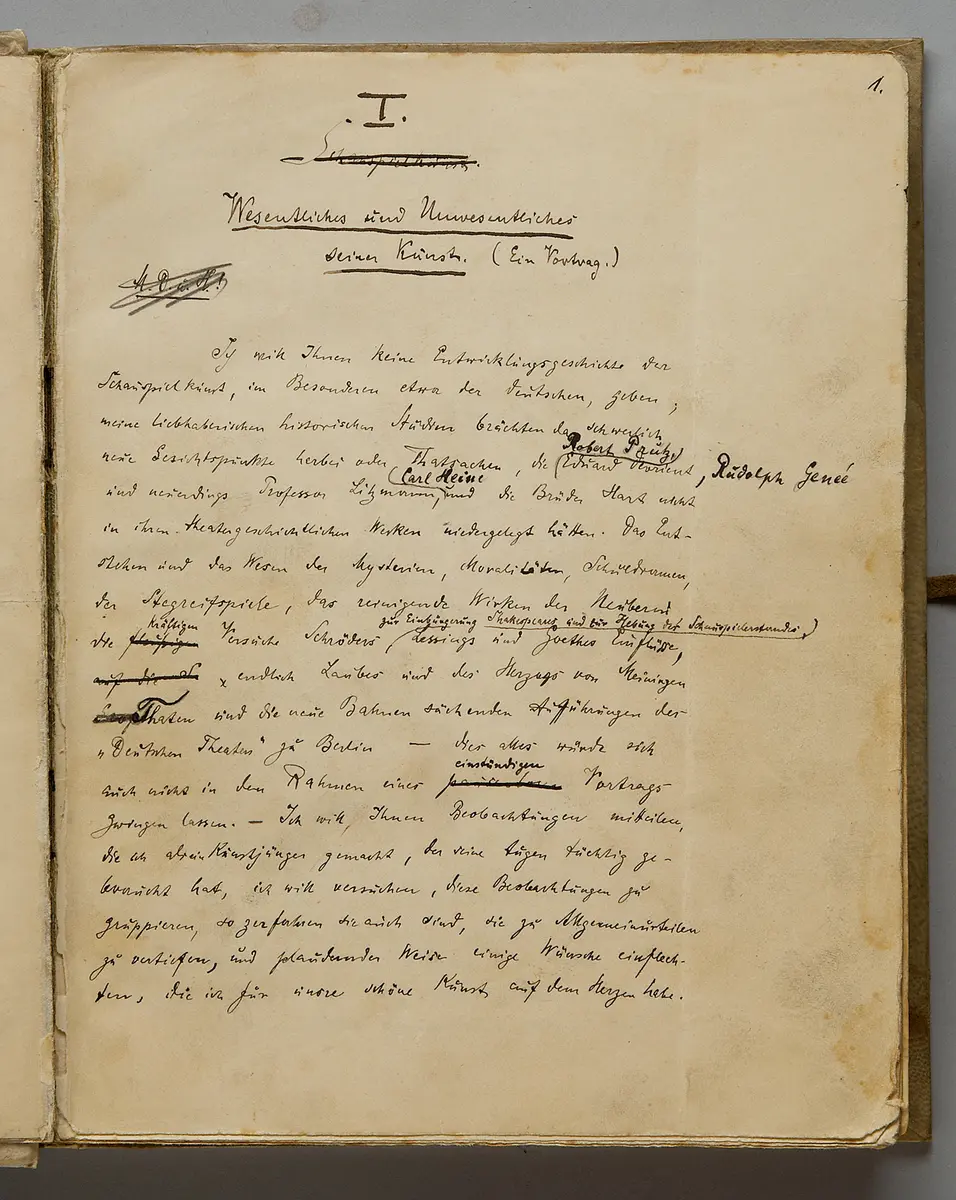 1.
I.
Schauspielkunst.
Wesentliches und Unwesentliches
seiner Kunst. (Ein Vortrag.)
M. D. u. H.!
Ich will Ihnen keine Entwicklungsgeschichte der
Schauspielkunst, im Besonderen etwa der deutschen, geben;
meine liebhaberischen historischen Studien brächten da schwerlich
Robert Prutz,
neue Gesichtspunkte herbei oder Thatsachen, die Eduard Devrient, Rudolph Geneé
Carl Heine
und neuerdings Professor Litzmann, und die Brüder Hart nicht
in ihren theatergeschichtlichen Werken niedergelegt hätten. Das Ent-
stehen und das Wesen der Mysterien, Moralitäten, Schuldramen,
der Stegreifspiele, das reinigende Wirken der Neuberin
kräftigen zur Einbürgerung Shakespeares und zur Hebung des Schauspielerstandes,
die Versuche Schröders Lessings und Goethes Einflüsse,
auf die S x endlich Laubes und des Herzogs von Meiningen
Thaten und die neue Bahnen suchenden Aufführungen des
„Deutschen Theaters" zu Berlin — dies alles würde sich
einstündigen
auch nicht in den Rahmen eines Vortrags
zwingen lassen. — Ich will Ihnen Beobachtungen mitteilen,
die ich als ein Kunstjünger gemacht, der seine Augen tüchtig ge-
braucht hat, ich will versuchen, diese Beobachtungen zu
gruppieren, so zerfahren sie auch sind, sie zu Allgemeinurteilen
zu vertiefen, und plaudernder Weise einige Wünsche einflech-
ten, die ich für unsre schöne Kunst auf dem Herzen habe.